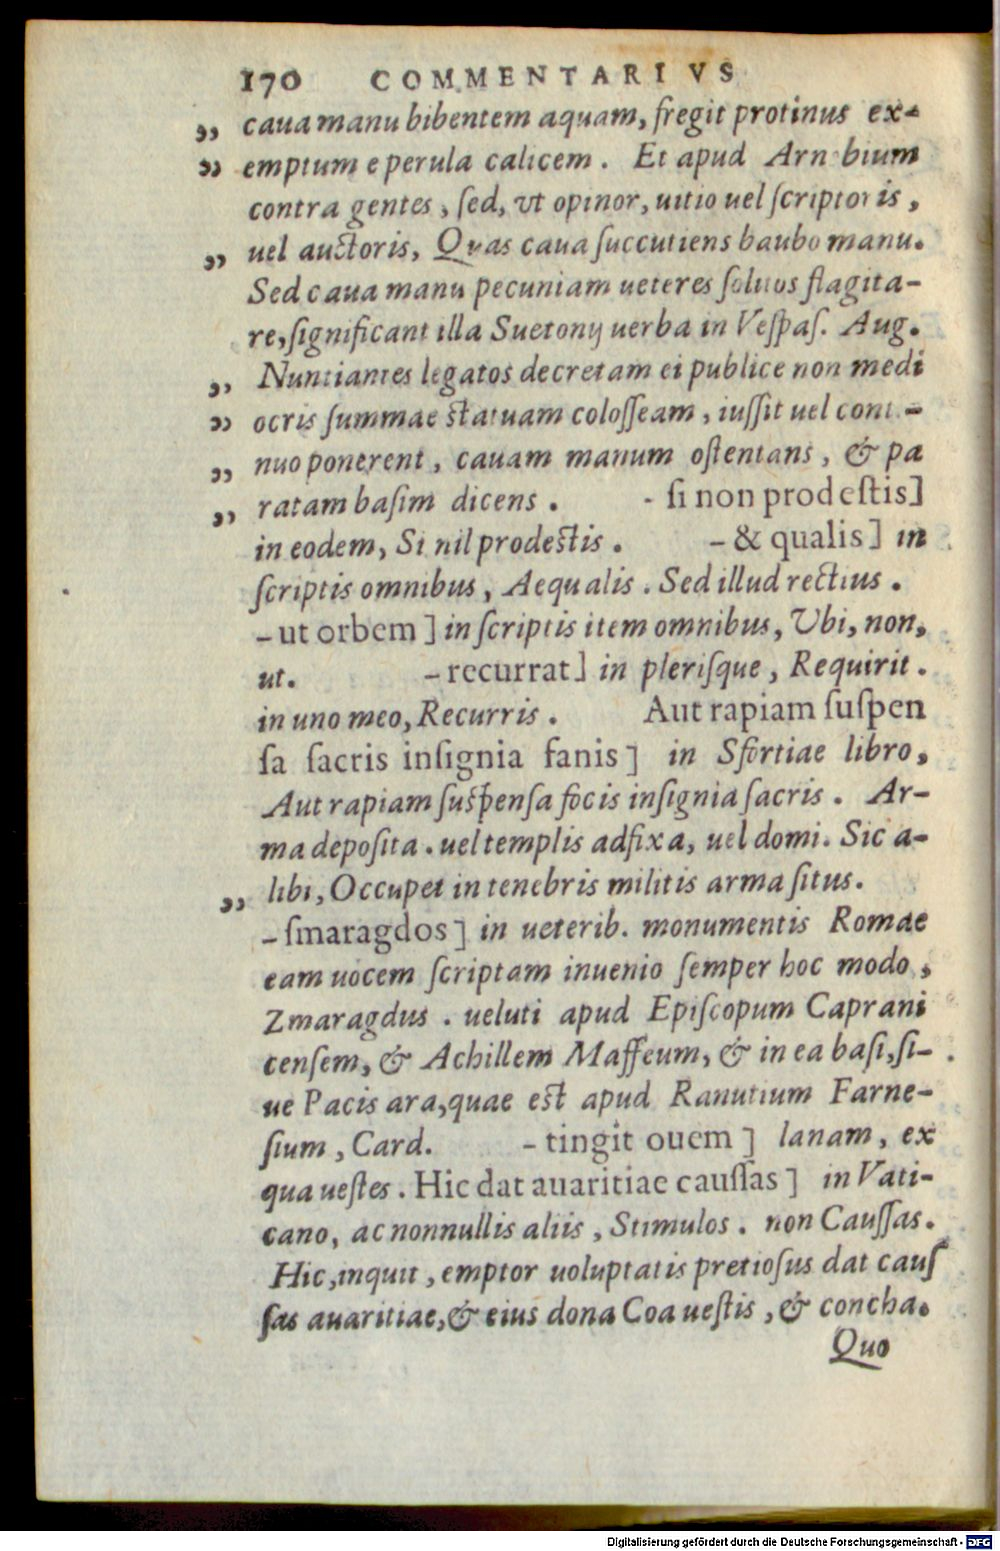 170 COMMENTARIVS
„ caua manu bibentem aquam, fregit protinus ex-
„ emptum e perula calicem. Et apud Arn bium
contra gentes, ſed, vt opinor, uitio uel ſcriptoris,
„ uel auctoris, Quas caua ſuccutiens baubo manu.
Sed caua manu pecuniam ueteres ſolitos flagita-
re, ſignificant illa Suetonij uerba in Veſpaſ. Aug.
„ Nuntiantes legatos decretam ei publice non medi
„ ocris ſummae statuam coloſſeam, iuſſit uel conti-
„ nuo ponerent, cauam manum oſtentans, & pa
„ ratam baſim dicens. - ſi non prodeſtis]
in eodem, Si nil prodestis. - & qualis] in
ſcriptis omnibus, Aequalis. Sed illud rectius.
- ut orbem] in ſcriptis item omnibus, Vbi, non,
ut. - recurrat] in pleriſque, Requirit.
in uno meo, Recurris. Aut rapiam ſuſpen
ſa ſacris inſignia fanis] in Sfortiae libro,
Aut rapiam ſuſpenſa focis inſignia ſacris. Ar-
ma depoſita. uel templis adfixa, uel domi. Sic a-
„ libi, Occupet in tenebris militis arma ſitus.
- ſmaragdos] in ueterib. monumentis Romae
eam uocem ſcriptam inuenio ſemper hoc modo,
Zmaragdus. ueluti apud Epiſcopum Caprani
cenſem, & Achillem Maffeum, & in ea baſi, ſi-
ue Pacis ara, quae est apud Ranutium Farne-
ſium, Card. - tingit ouem] lanam, ex
qua ueſtes. Hic dat auaritiae cauſſas] in Vati-
cano, ac nonnullis aliis, Stimulos. non Cauſſas.
Hic, inquit, emptor uoluptatis pretioſus dat cauſ
ſas auaritiae, & eius dona Coa ueſtis, & concha.
Quo
Digitalisierung gefördert durch die Deutsche Forschungsgemeinschaft - DFG